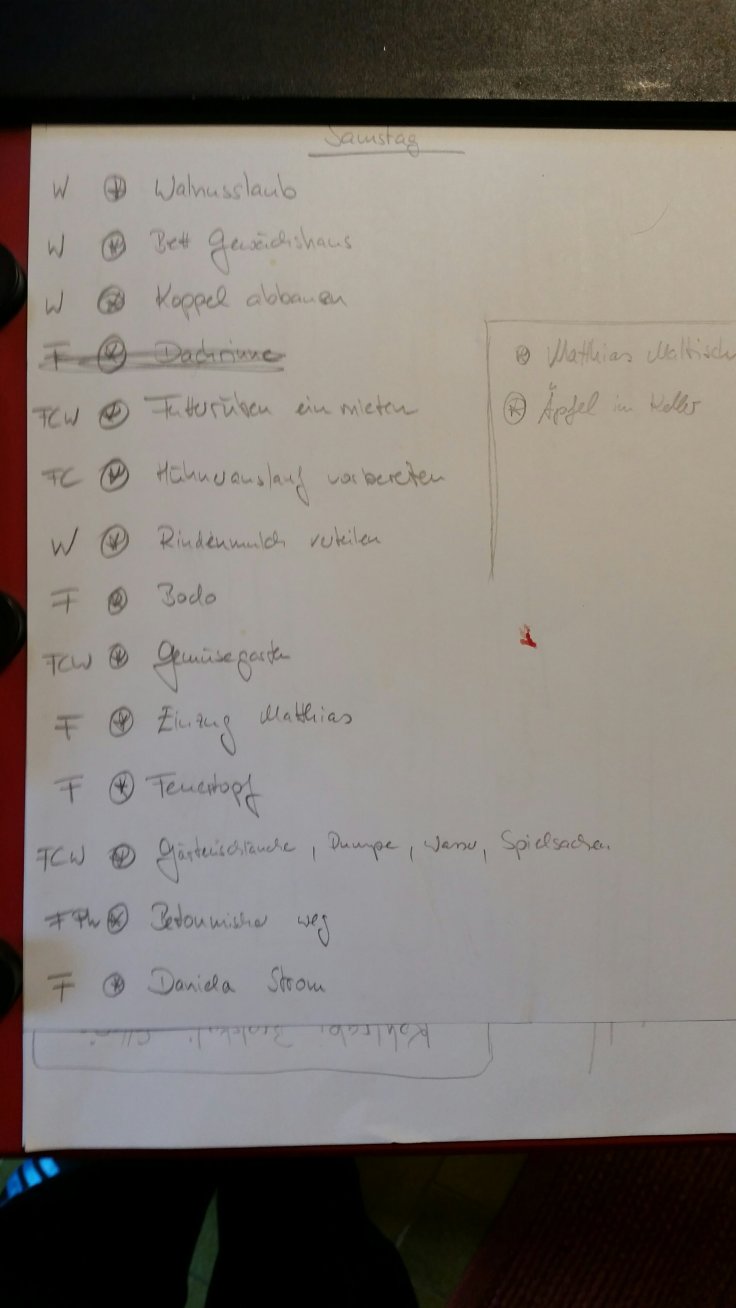 Samstag
W Walnusslaub
W Bett Gewächshaus
W Koppel abbauen
F Dachrinne
FCW Futterrüben ein mieten
FC Hühnerauslauf vorbereiten
W Rindenmulch verteilen
F Bodo
FCW Gemüsegarten
F Einzug Matthias
F Feuertopf
FCW Gartenschläuche, Pumpe, Wasser, Spielsachen
F Betonmischer weg
F Daniela Strom
Matthias
Äpfel im Keller
Kohlrabi